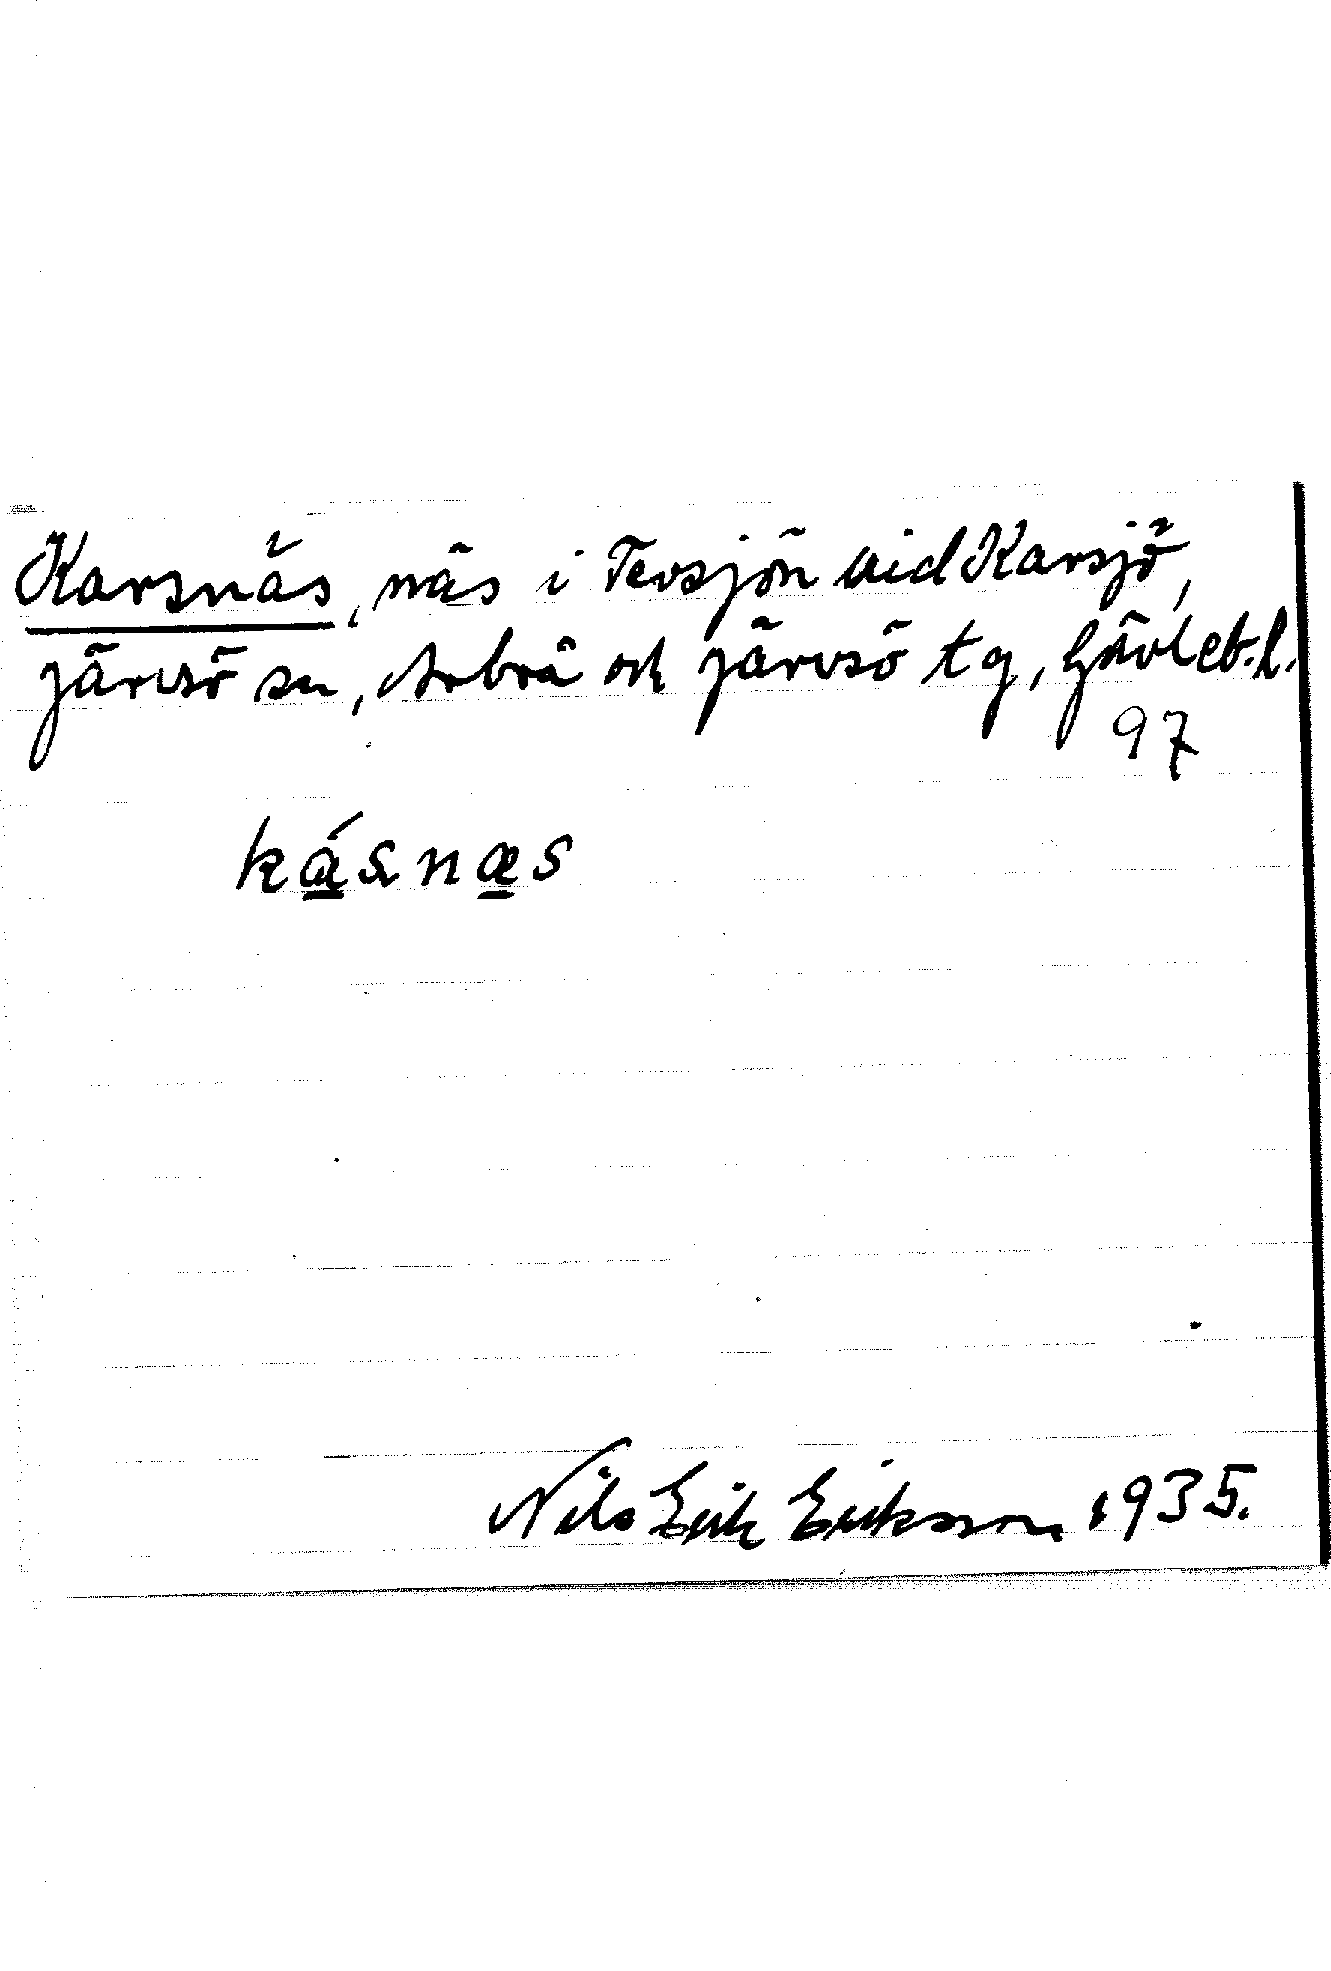 Karsnäs, näs i Tevsjön vid Karsjö,
Järvsö sn, Arbrå och Järvsö tg, Gävleb.l.
97
kásnæs
Nils Erik Eriksson 1935.